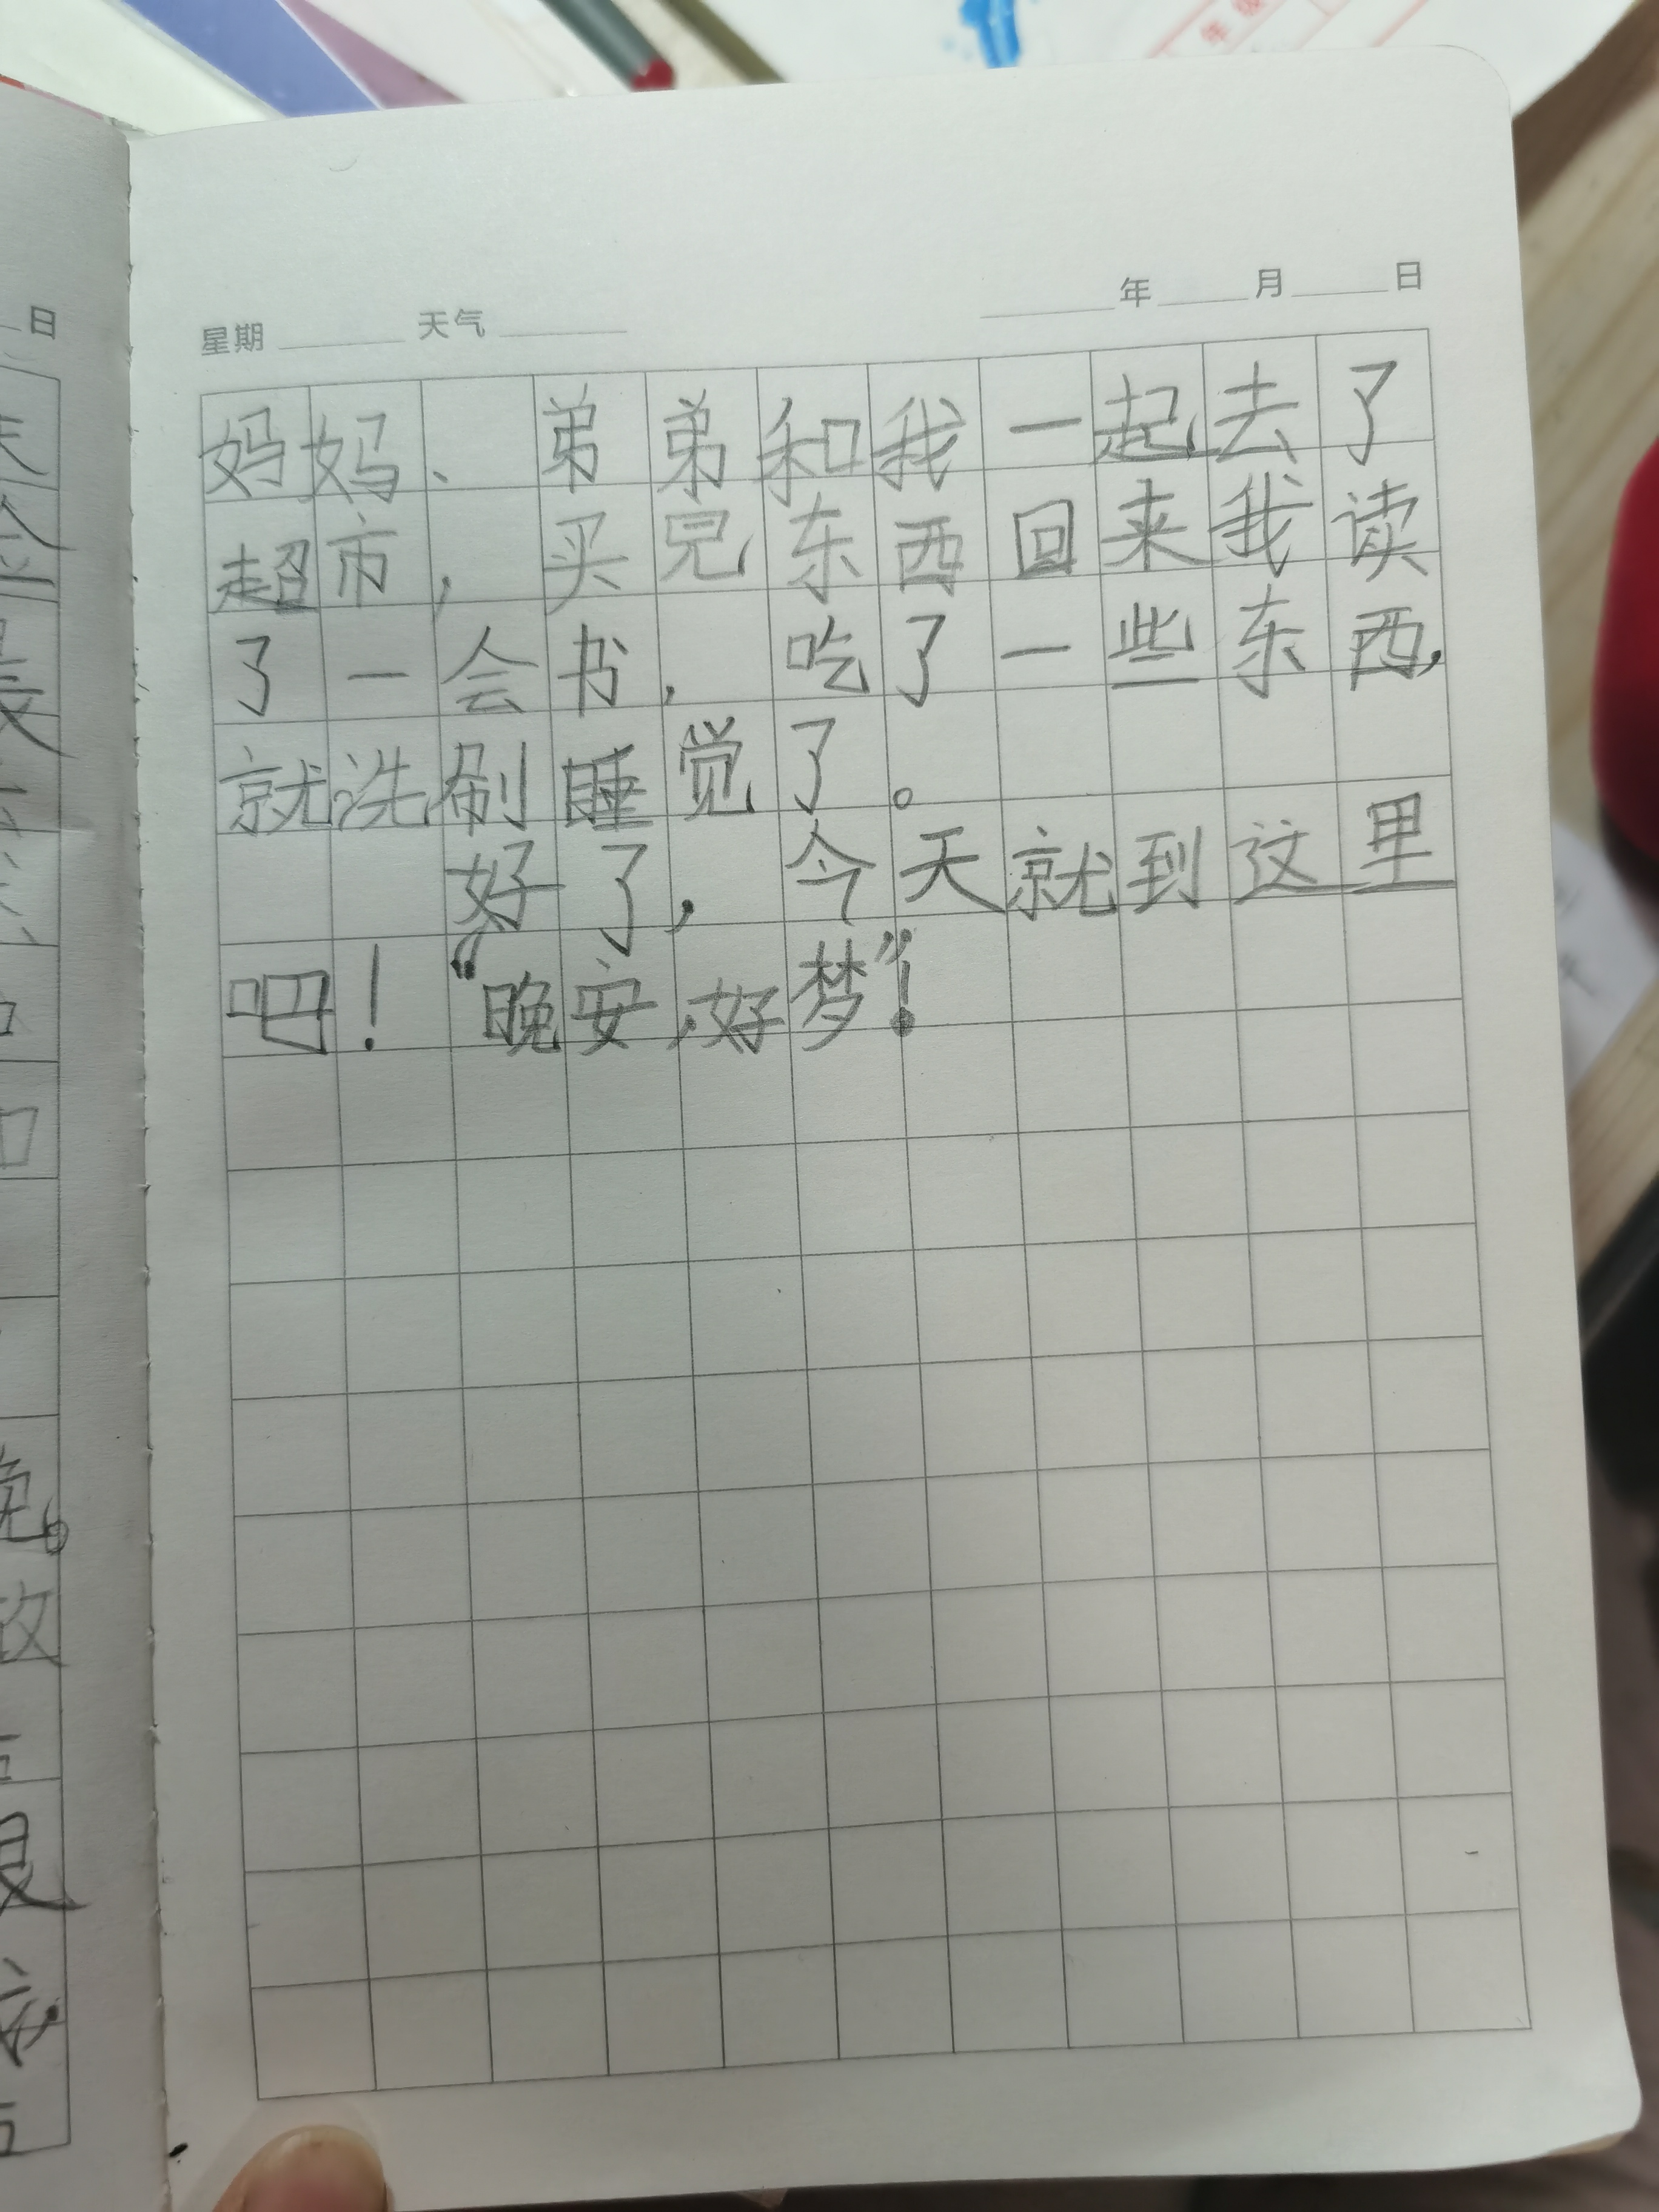 年级
日
星期 天气 年 月 日
妈妈、弟弟和我一起去了
超市,买兄东西回来我读
了一会书,吃了一些东西,
就洗刷睡觉了。
好了,今天就到这里
吧!“晚安,好梦”!